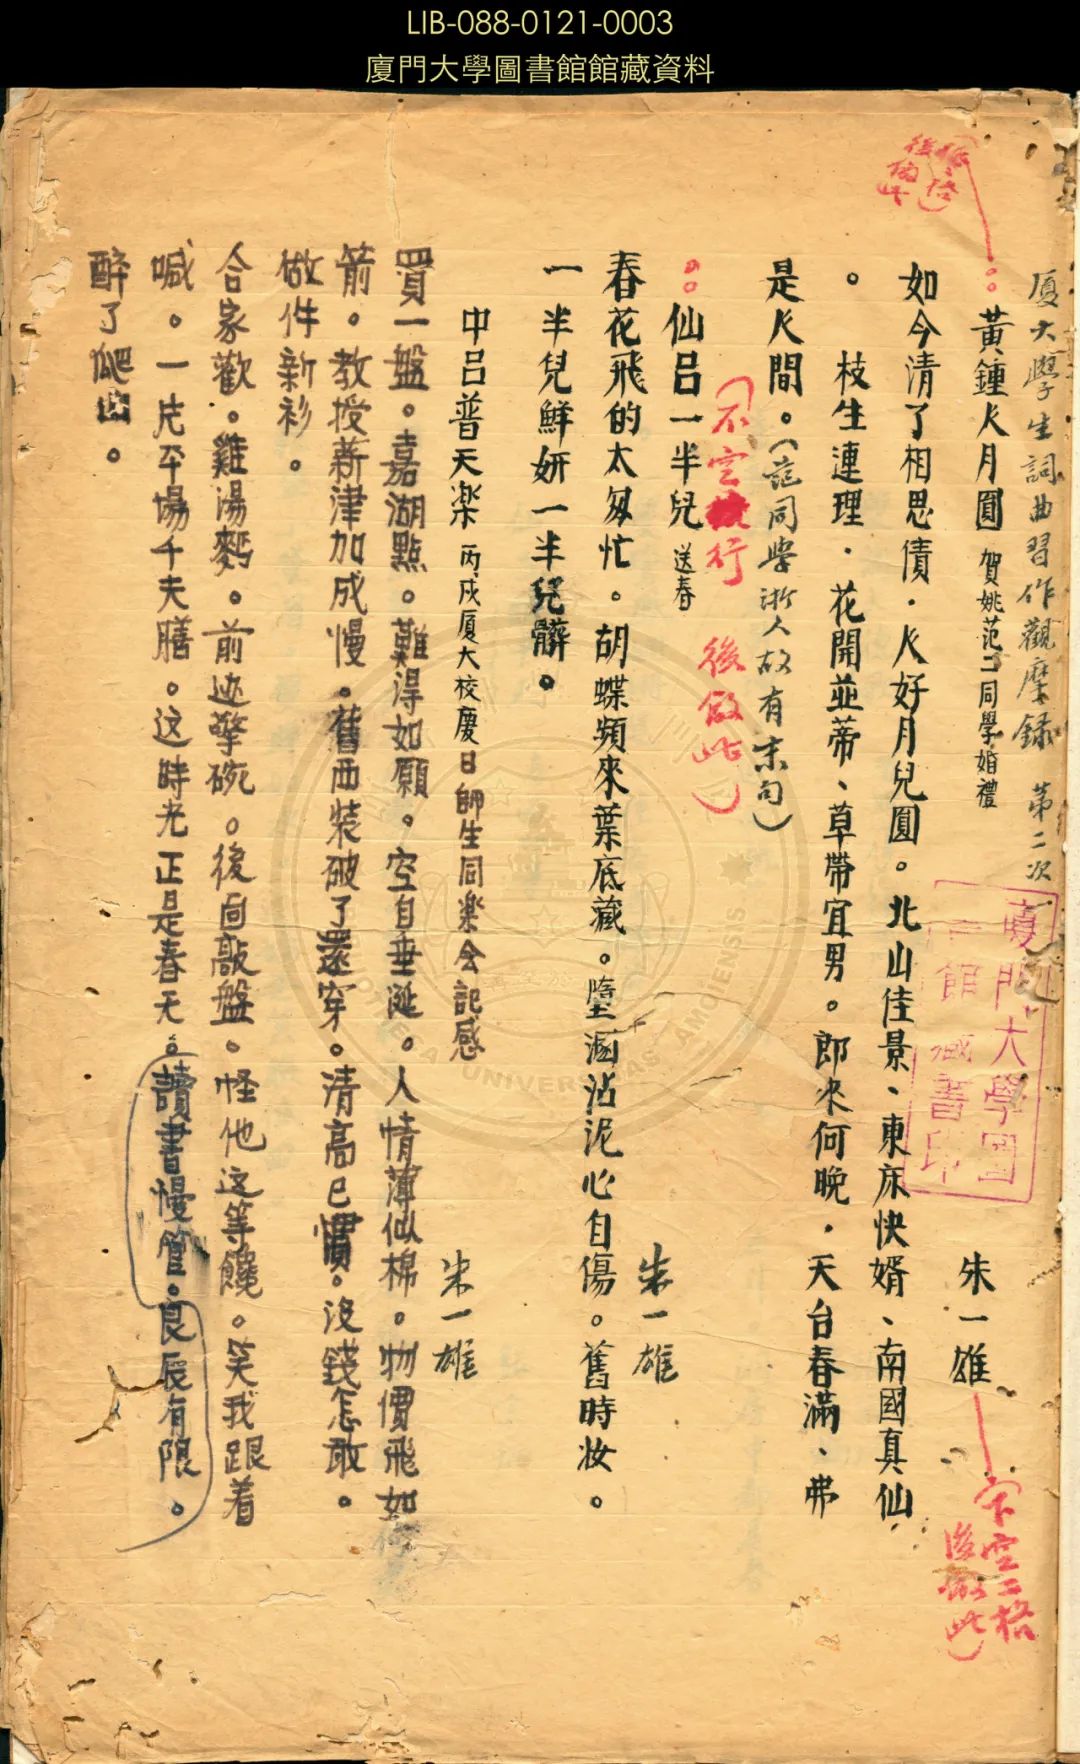 LIB-088-0121-0003
廈門大學圖書館館藏資料
厦大學生詞曲習作觀摩錄 第二次
黃鍾人月圓 賀姚范二同學婚禮 朱一雄
如今清了相思債．人好月兒圓。北山佳景、東床快婿、南國真仙
。枝生連理．花開並蒂、草帶宜男。郎來何晚．天台春滿、弗
是人間。（范同學浙人故有末句）
仙呂一半兒 送春 朱一雄
（不空行 後倣此）
春花飛的太匆忙。胡蝶頻來葉底藏。墮溷沾泥心自傷。舊時妝。
一半兒鮮妍一半兒髒。
中吕普天楽 丙戍厦大校慶日師生同楽会記感 朱一雄
買一盤。嘉湖點。難得如願。空自垂涎。人情薄似棉。物價飛如
箭。教授薪津加成慢。舊西裝破了還穿。清高已慣。没錢怎敢。
做件新衫。
合家歡。雞湯麪。前边擎碗。後面敲盤。怪他这等饞。笑我跟着
喊。一片平場千夫膳。这時光正是春天。讀書慢管。良辰有限。
醉了爬出。
下空二格
後倣此）
廈門大學圖
書館藏書印